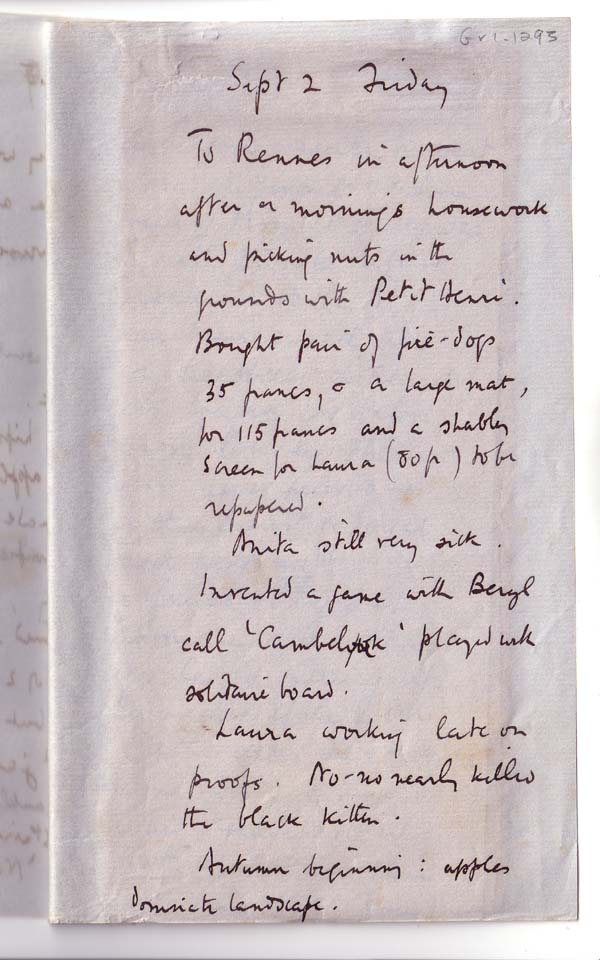 Gr1-1293
Sept 2 Friday
To Rennes in afternoon
after a mornings housework
and picking nuts in the
grounds with Petit Henri.
Bought pair of fire-dogs
35 francs, & a large mat,
for 115 francs and a shabby
screen for Laura (80fr) to be
repapered.
Anita still very sick.
Invented a game with Beryl
call 'Cambeluk' played with
solitaire board.
Laura working late on
proofs. No-no nearly killed
the black kitten.
Autumn beginning: apples
dominate landscape.